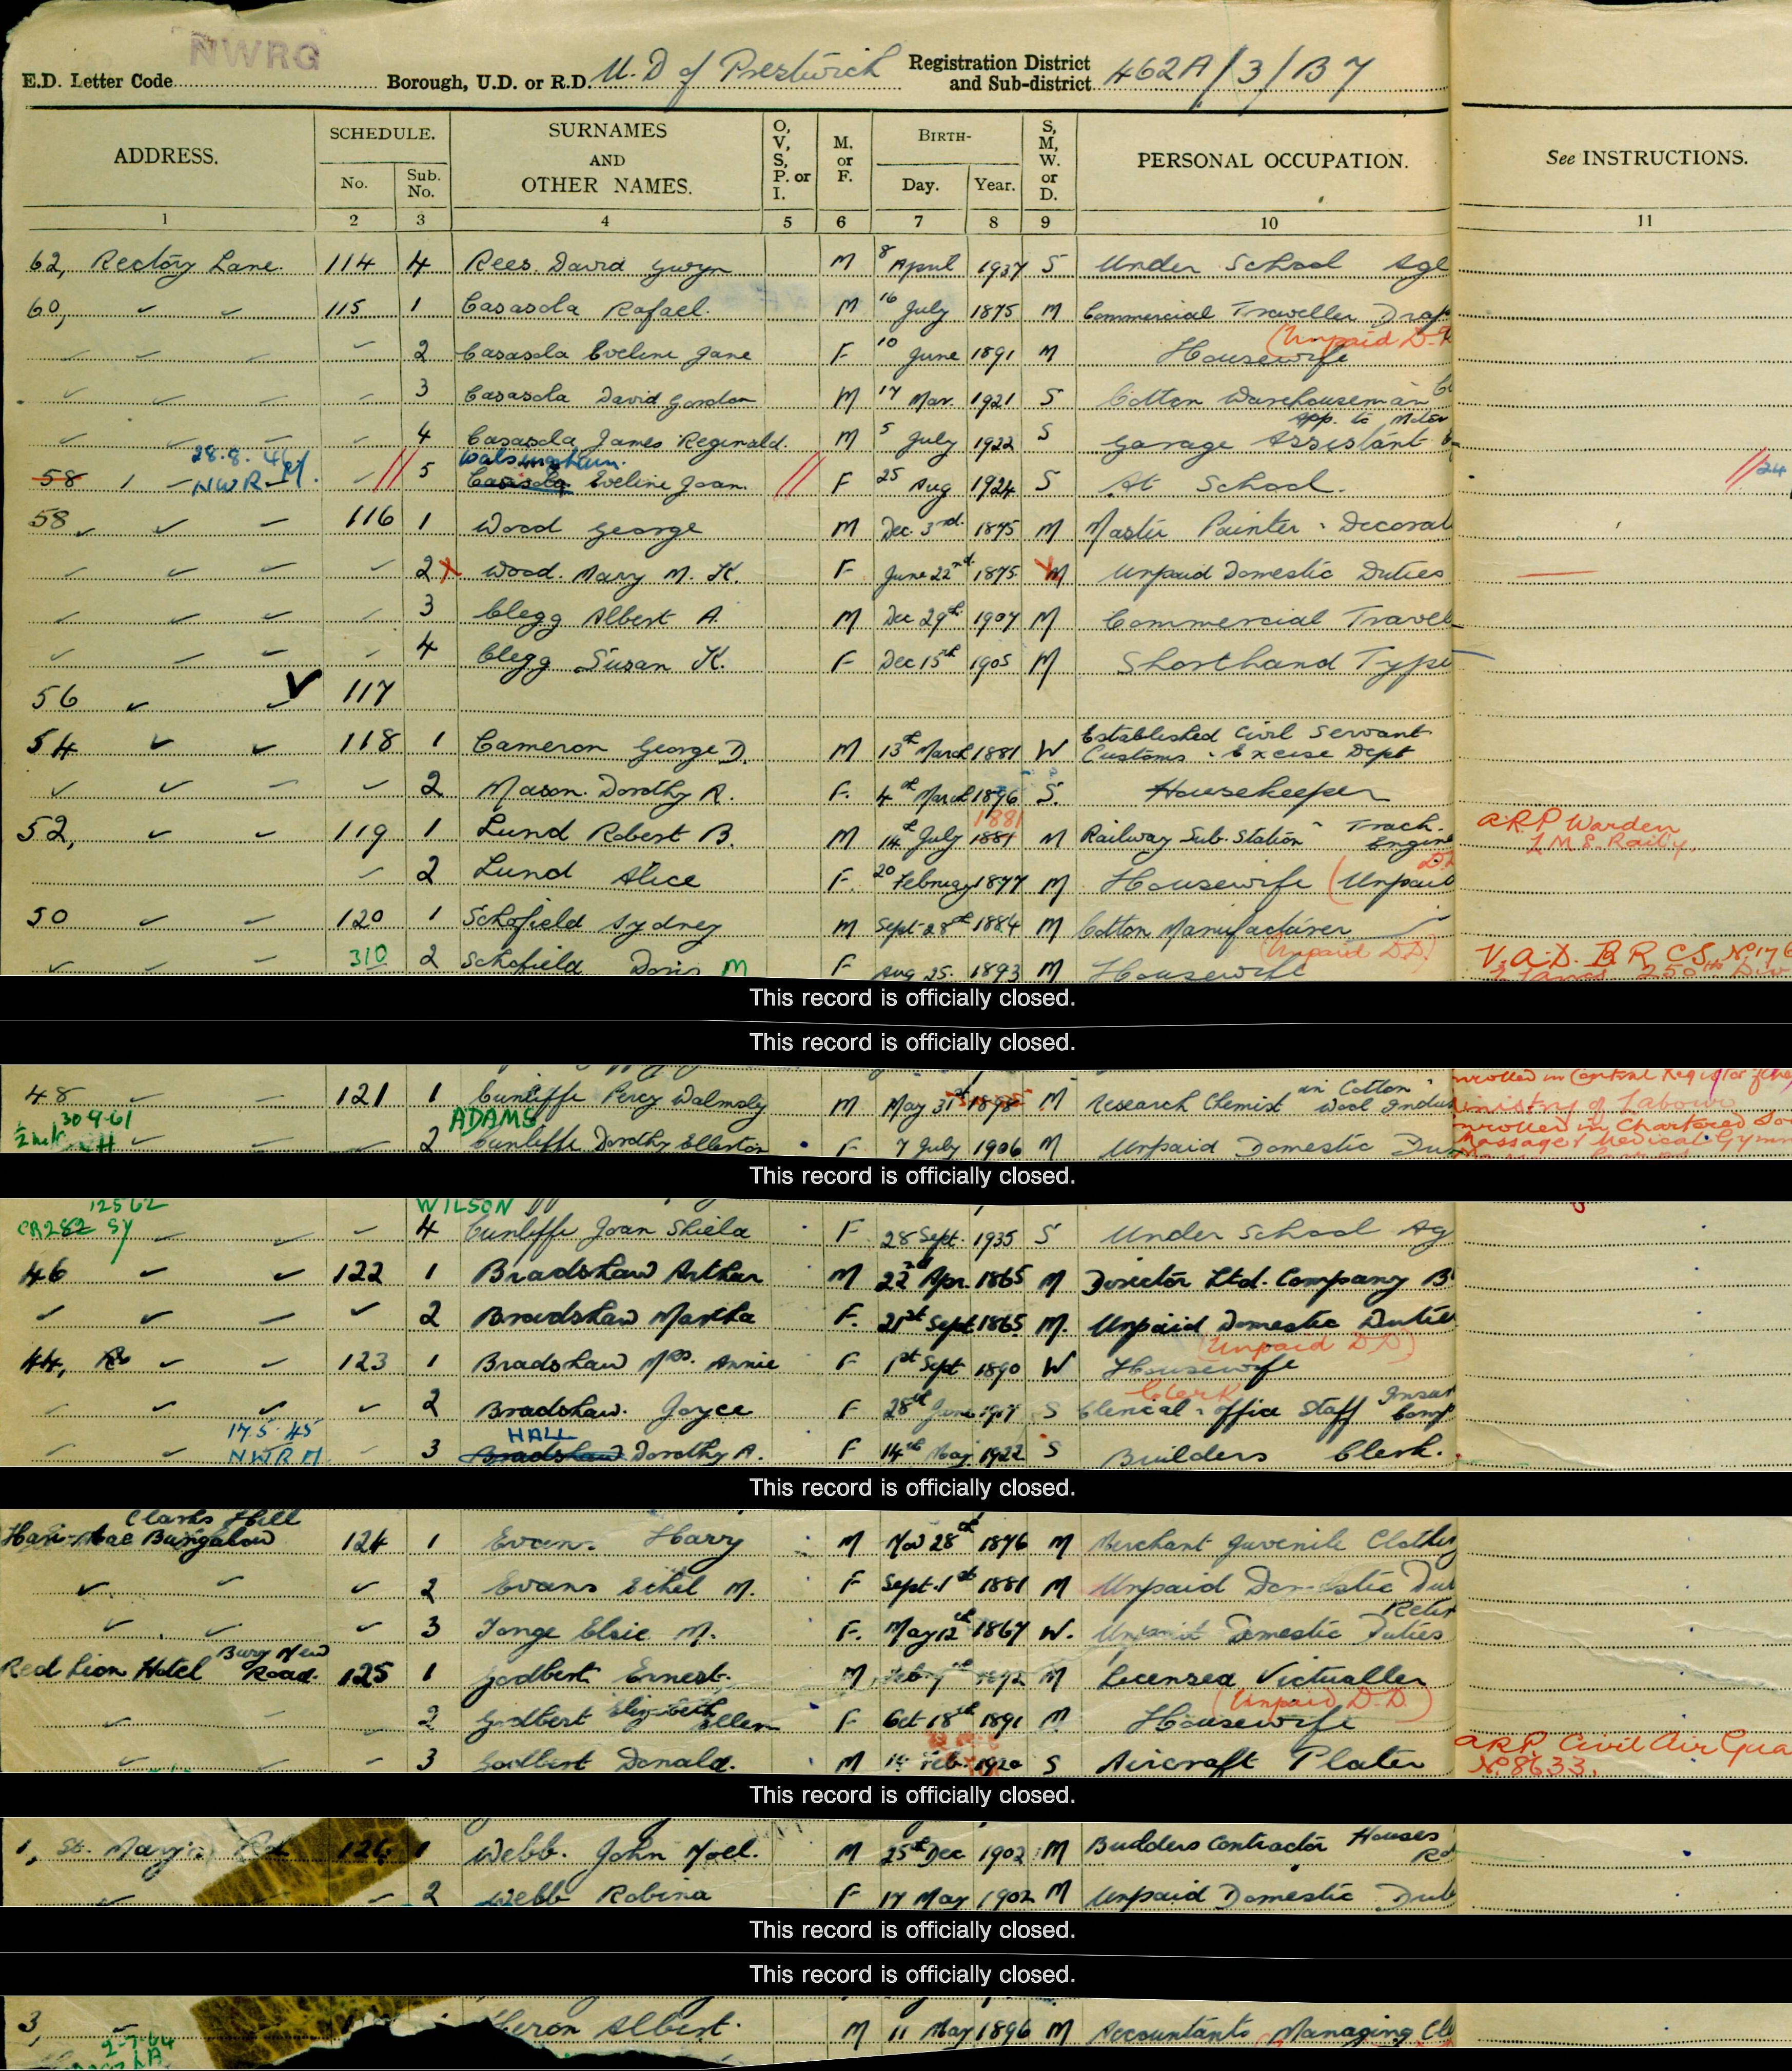 NWRG
E.D. Letter Code Borough, U.D. or R.D. U. D of Prestwich Registration District and Sub-district 462A/3/B7
ADDRESS. SCHEDULE. No. Sub. No. SURNAMES AND OTHER NAMES. O, V, S, P. or I. M. or F. BIRTH- Day. Year. S, M, W. or D. PERSONAL OCCUPATION. See INSTRUCTIONS.
1 2 3 4 5 6 7 8 9 10 11
62, Rectory Lane 114 4 Rees David Gwyn M 8 April 1937 S Under School Age
60, 115 1 Casasola Rafael. M 16 July 1875 M Commercial Traveller Drap
(Unpaid D.
2 Casasola Eveline Jane F 10 June 1891 M Housewife
3 Casasola David Gordon M 17 Mar. 1921 S Cotton Warehouseman
App. to Motor
4 Casasola James Reginald. M 5 July 1922 S Garage Assistant
28.8.46 Walsingham.
58 NWR 5 Casasola Eveline Joan. F 25 Aug 1924 S At School. 24
58 116 1 Wood George M Dec. 3rd. 1875 M Master Painter & Decorat
2 Wood. Mary M. K. F June 22nd. 1875 M Unpaid Domestic Duties
3 Clegg Albert A. M Dec 29th. 1907 M Commercial Travel
4 Clegg Susan K. F Dec 15th 1905 M Shorthand Typi
56 117
54 118 1 Cameron George D. M 13th March 1881 W Established Civil Servant
Customs & Excise Dept
2 Mason Dorothy R. F. 4th March 1896 S. Housekeeper
1881
52, 119 1 Lund Robert B. M 14th July 1881 M Railway Sub-Station & Track. Engine ARP Warden
LMS. Raily.
2 Lund Alice F. 20 February 1877 M Housewife (Unpaid
50 120 1 Schofield Sydney M Sept-28th 1884 M Cotton Manufacturer
(Unpaid D.D.)
310 2 Schofield Doris M F Aug 25. 1893 M Housewife V.A.D. B R C S. No 176
250th Div
This record is officially closed.
This record is officially closed.
48 121 1 Cunliffe Percy Walmsly M May 31st M Research Chemist in Cotton & Wool Indus
Enrolled in Central Register
Ministry of Labour
30.9.61 ADAMS
2 Cunliffe Dorothy Ellerton F 7 July 1906 M Unpaid Domestic Du
Enrolled in Chartered Soc
Massage & Medical Gymn
This record is officially closed.
12562 WILSON
CR282 SY 4 Cunliffe Joan Shiela F 28 Sept. 1935 S Under School Ag
46 122 1 Bradshaw Arthur M 22nd Apr. 1865 M Director Ltd. Company B
2 Bradshaw Martha F. 21st Sept 1865 M. Unpaid Domestic Dutie
(Unpaid D.D)
44, 123 1 Bradshaw Mrs. Annie F 1st Sept 1890 W Housewife
Clerk
2 Bradshaw. Joyce F 28th June S Clerical & Office Staff Insur Comp
17.5.45 HALL
NWRM 3 Bradshaw Dorothy A. F 14th May 1922 S Builders Clerk.
This record is officially closed.
Clarks Hill
Bungalow 124 1 Evans Harry M Nov 28th 1876 M Merchant Juvenile Clothing
2 Evans Ethel M. F Sept. 1st 1881 M Unpaid Domestic Dut
3 Tonge Elsie M. F. May 12th 1867 W. Unpaid Domestic Duties Retir
Red Lion Hotel Bury New Road. 125 1 Godbert Ernest. M Feb M Licensed Victualler
(Unpaid D.D.)
2 Godbert Elizabeth Ellen F Oct 18th 1891 M Housewife
3 Godbert Donald. M Feb. 1920 S Aircraft Plater ARP Civil Air Gua
No. 8633.
This record is officially closed.
1, St. Mary's Rd 126 1 Webb. John Noel. M 25th Dec 1902 M Builders Contractor Houses & Rd
2 Webb Robina F 17 May 1902 M Unpaid Domestic Dut
This record is officially closed.
This record is officially closed.
3, Heron Albert. M 11 May 1896 M Accountants Managing Cle
2-7-64